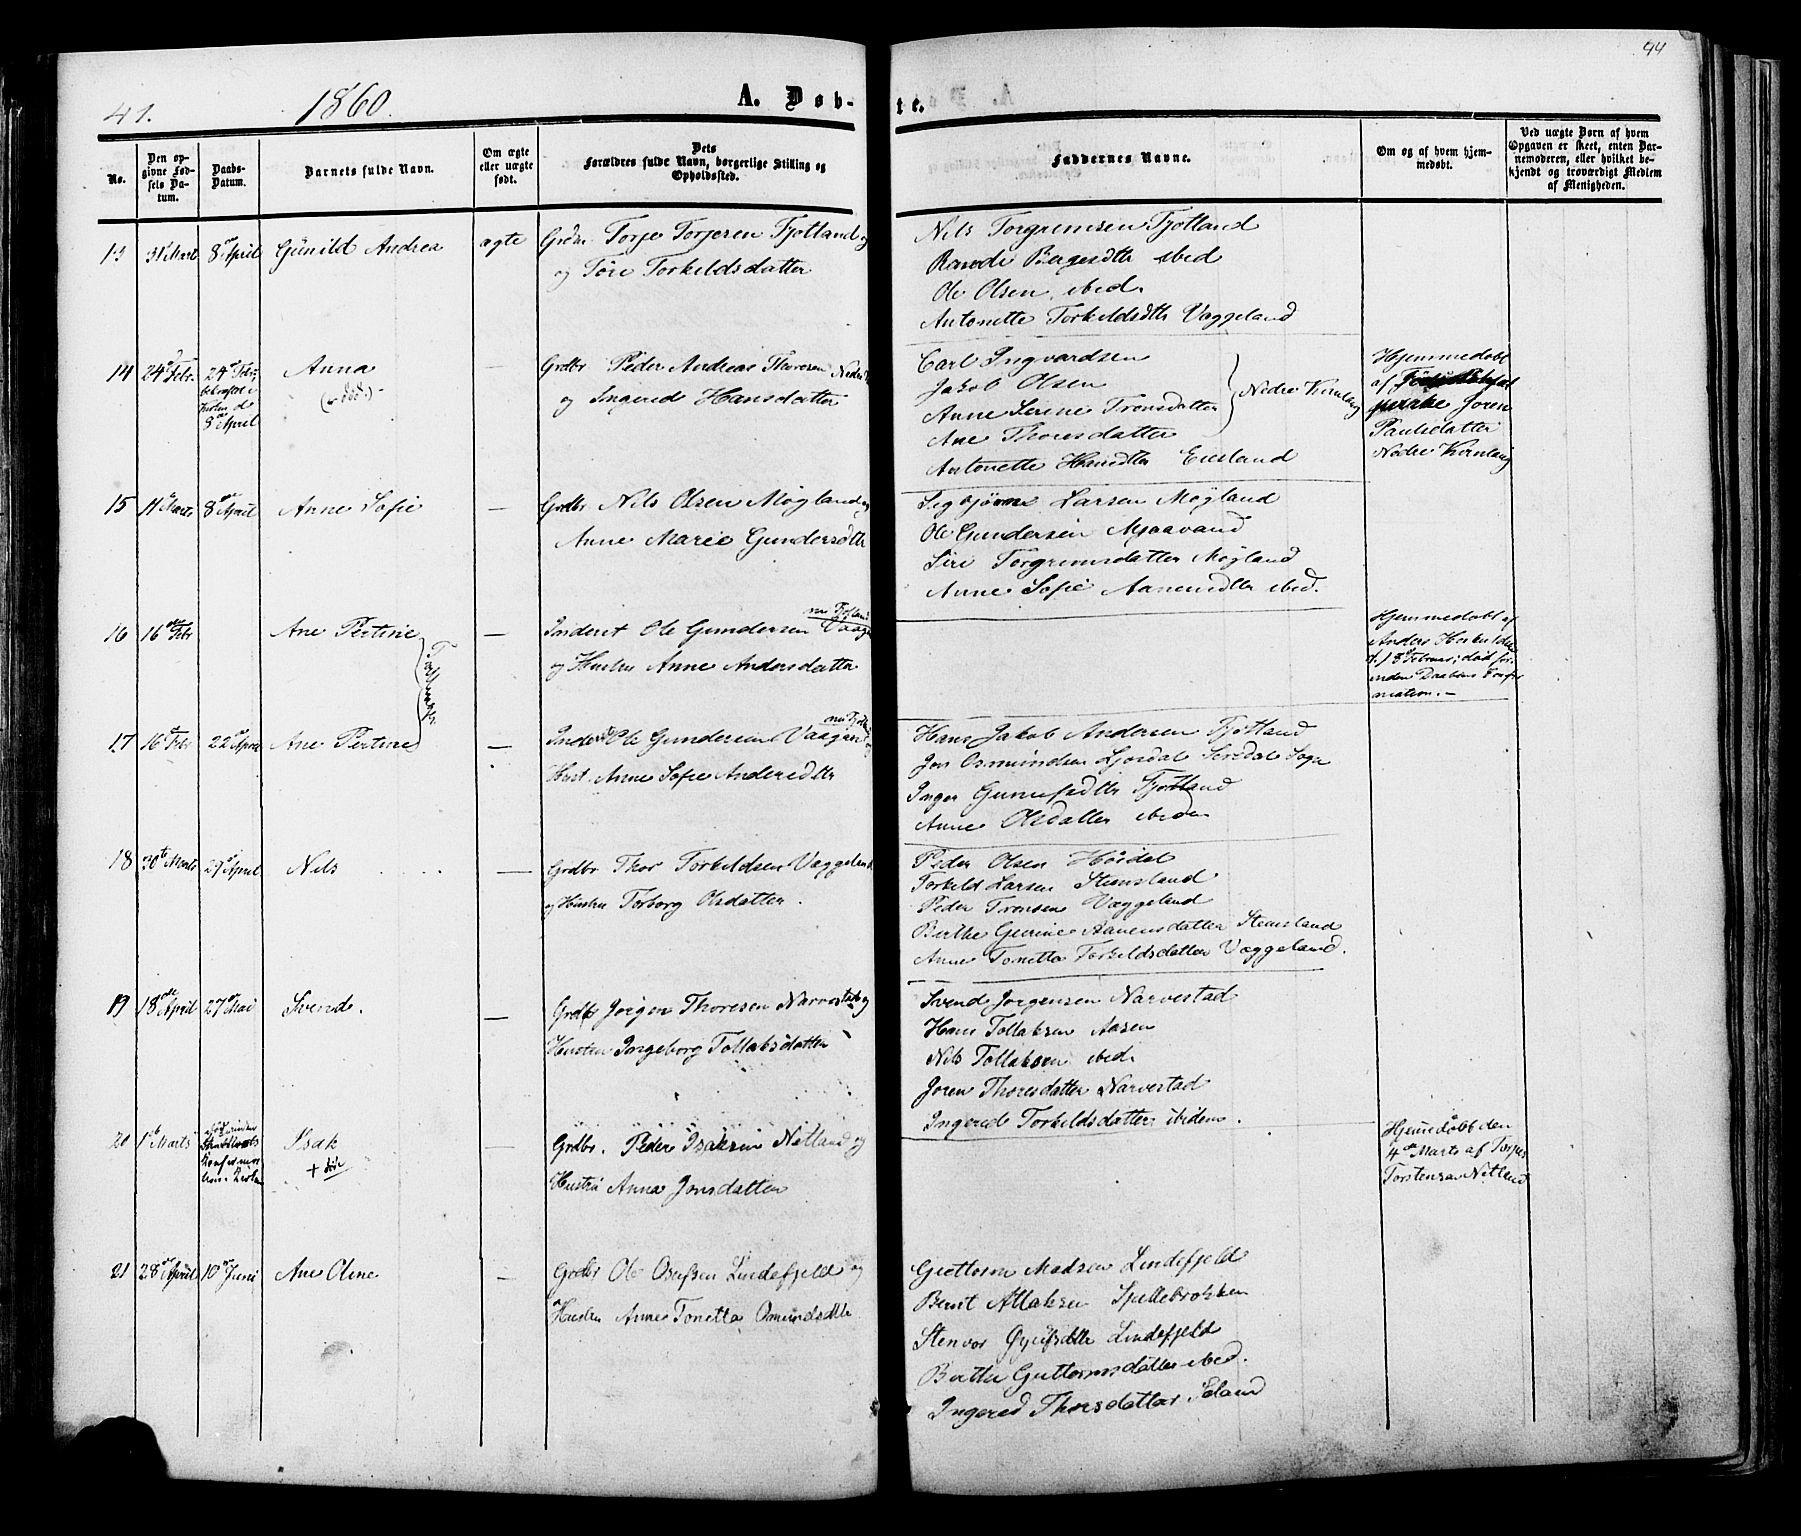 41.
1860.
A. Døb-
te.
44
No.
Den op-
givne Fød-
sels Da-
tum.
Daabs-
Datum.
Barnets fulde Navn.
Om ægte
eller uægte
født.
Dets
Forældres fulde Navn, borgerlige Stilling og
Opholdssted.
Faddernes Navne.
Om og af hvem hjem-
medøbt.
Ved uægte Børn af hvem
Opgaven er skeet, enten Bar-
nemoderen, eller hvilket be-
kjendt og troværdigt Medlem
af Menigheden.
13 31 Marts 8de April Gunild Andrea ægte
Grdbr. Torje Torjesen Fjotland
og Tóre Torkildsdatter
Nils Torgrimsen Fjotland
Ramdi Bergesdtr ibid
Ole Olsen ibid.
Antonette Torkildsdtr Væggeland
14 24de Febr. 24de Febr.
bekræftet i
Kirken d.
8de April
Anna
(død.) —
Grdbr Peder Andreas Thoresen Nedre
og Ingerid Hansdatter
Carl Ingvardsen
Jakob Olsen
Anne Serine Tronsdatter
Ane Thoresdatter
Nedre Kvinlog
Antonette Hansdtr Eiesland
Hjemmedøbt
af
Joren
Paulsdatter
Nedre Kvinlog
15 11te Marts 8de April Anne Sofie —
Grdbr Nils Olsen Møgland og
Anne Marie Gundersdtr
Sigbjørn Larsen Møgland
Ole Gundersen Mjaavand
Siri Torgrimsdatter Møgland
Anne Sofie Aanensdtr ibid.
16 16de Febr Ane Pertine
Tvillinger.
—
Inderst Ole Gundersen Vaagen
nu Fjotland
og Hustru Anne Andersdatter
Hjemmedøbt af
Anders
d. 18 Februar; død for-
inden Daabens Confir-
mation. —
17 16de Febr 22de April Ane Pertine —
Inderst Ole Gundersen Vaagen
Hust. Anne Sofie Andersdtr
Hans Jakob Andersen Fjotland
Jon Osmundsen Ljosdal Siredal Sogn
Inger Gunufsdtr Fjotland
Anne Olsdatter ibiden
18 30te Marts 29de April Nils —
Grdbr Thor Torkildsen Væggeland
og Hustru Torborg Olsdatter.
Peder Olsen Høidal
Torkild Larsen Stensland
Peder Tronsen Væggeland
Berthe Gurine Aanensdatter Stensland
Anne Tonetta Torkildsdatter Væggeland.
19 18de April 27de Mai Svend. —
Grdbr Jørgen Thoresen Narvestad og
Hustru Ingeborg Tollaksdatter
Svend Jørgensen Narvestad
Hans Tollaksen Aasen
Nils Tollaksen ibid.
Joren Thoresdatter Narvestad
Ingerid Torkildsdatter ibidem.
20 1ste Marts
død forinden
Konfirmas-
tion i Kirken
Isak
+ død
—
Grdbr. Peder Isaksen Netland og
Hustru Anna Jonsdatter
Hjemmedøbt den
4de Marts af Torjus
Torstensen Netland
21 28de April 10de Juni Ane Oline —
Grdbr Ole Osufsen Lindefjeld og
Hustru Anne Tonetta Osmundsdtr
Guttorm Madsen Lindefjeld
Bent Atlaksen Spillebrokken
Stenvor Øyufsdtr Lindefjeld
Berthe Guttormsdatter ibid.
Ingerid Thorsdatter Eland